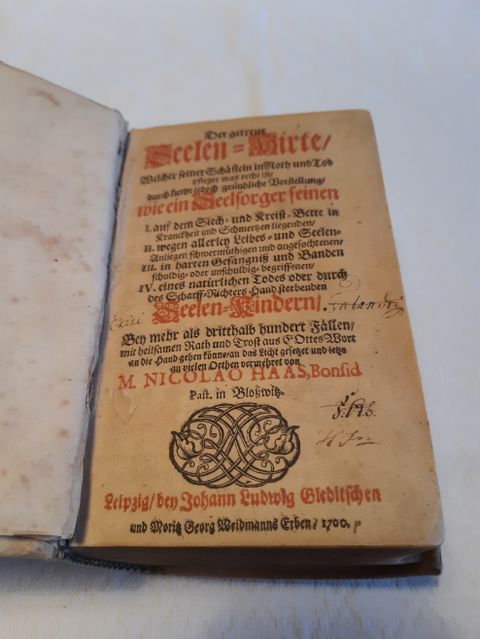 Der getreue
Seelen-Hirte/
Welcher seiner Schäflein in Noth und Tod
pfleget was recht ist/
durch kurtze jedoch gründliche Vorstellung/
wie ein Seelsorger seinen
I. auf dem Siech- und Kreist-Bette in
Kranckheit und Schmertzen liegenden/
II. wegen allerley Leibes- und Seelen-
Anliegen schwermüthigen und angefochtenen/
III. in harten Gefängniß und Banden
schuldig- oder unschuldig- begriffenen/
IV. eines natürlichen Todes oder durch
des Scharff-Richters Hand sterbenden
Seelen-Kindern/
Bey mehr als dritthalb hundert Fällen/
mit heilsamen Rath und Trost aus GOttes Wort
an die Hand gehen könne/an das Licht gesetzet und ietzo
an vielen Orthen vermehret von
M. NICOLAO HAAS, Bonsid.
Past. in Bloßwitz.
Leipzig/ bey Johann Ludwig Gleditschen
und Moritz Georg Weidmanns Erben/ 1700.